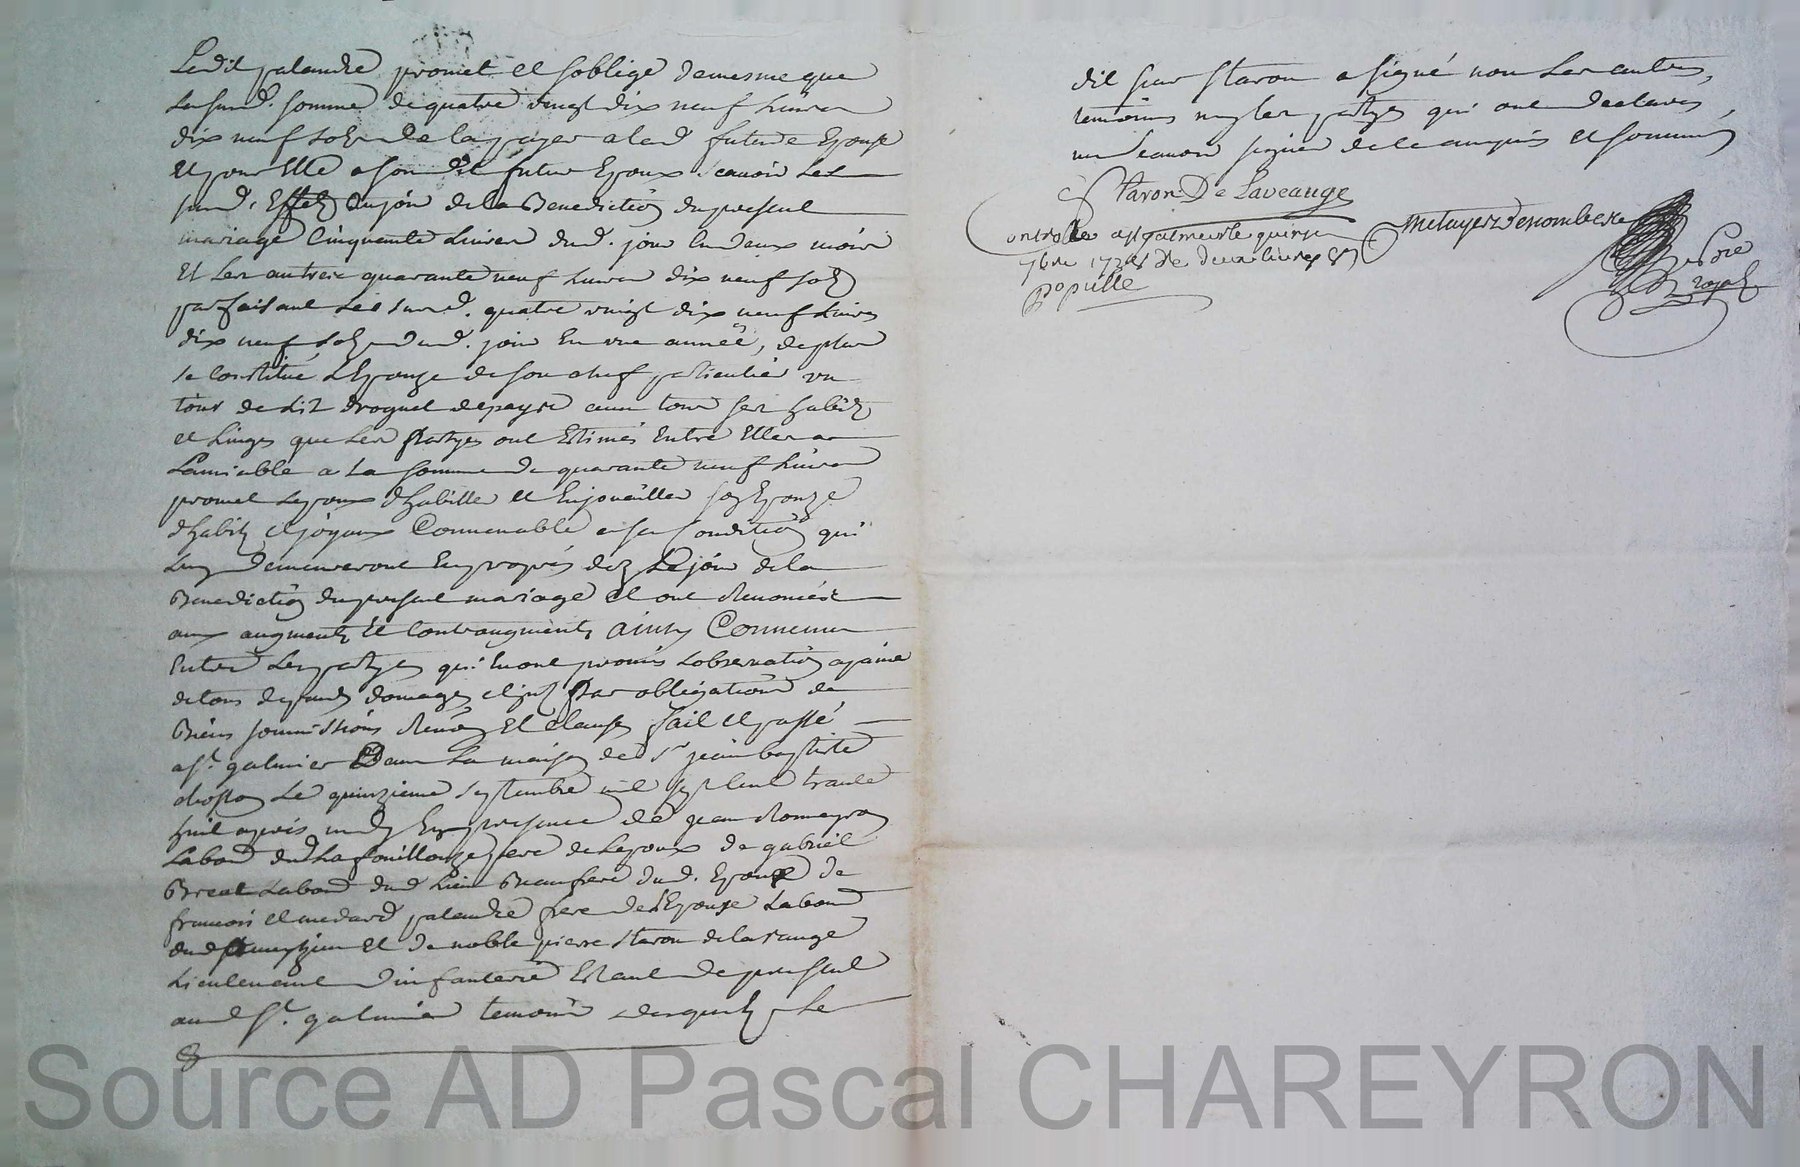 Ledit palandre promet et soblige demesme que
La surd. somme de quatre vingt dix neuf Livres
dix neuf sols de la payer a lad future Epouse
Et pour Elle a son dit futur Epoux scavoir Les
surd. Effets du jour de la Benediction du present
mariage Cinquante Livres dud. jour En deux mois
Et Les autres quarante neuf Livres dix neuf sols
parfaisant Les surd. quatre vingt dix neuf Livres
dix neuf sols dud. jour En une année, de plus
se Constitue L'Epouze de son chef particulier un
tour de Lit droguet de pays avec tous ses habits
et Linges que Les Partyes ont Estimés Entre Elles a
Lamiable a La somme de quarante neuf Livres
promet Lepoux d'habiller et Enjouailler son Epouze
d'habits et joyaux Convenable a sa Condition qui
Luy demeureront En propres dez Le jour de la
Benediction du present mariage Et ont Renoncés
aux augments Et Contraugments ainsy Convenu
Entre Les partyes qui En ont promis Lobservation a paine
de tous despends domages Par obligations de
Biens soumissions Et Clauses fait Et passé
a St. galmier Dans La maison de Sr jean baptiste
Le quinzieme septembre mil sept Cent trante
huit apres midy En presence de jean Romeyron
Labour dud La fouillouze pere de Lepoux de gabriel
Labour dud Lieu Beaufrere dud. Epoux de
francois et medard palandre frere de L'Epouze Labour
Et de noble pierre Staron de la
Lieutenant d'infanterie Estant de present
aud St. galmier temoins desquels Le
dit sieur Staron a signé non Les autres
temoins ny Les partyes qui ont declarés
ne scavoir signer de ce enquis et sommés
Staron De Laveauge
Controlle a St galmier le quinze
7bre 1738 de deux livres
Populle